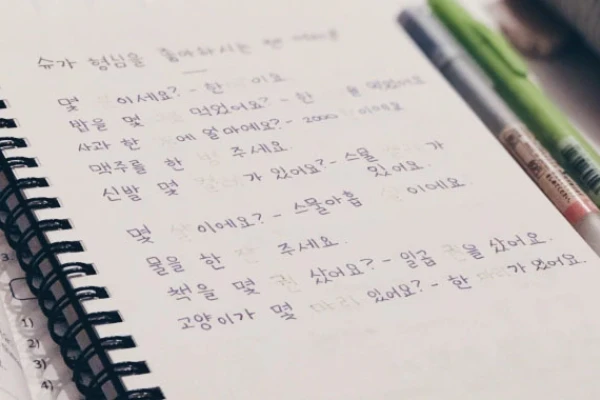 슈가 형님을 좋아하시는
몇 살이세요? - 한 이요.
밥을 몇 먹었어요? - 한 을 먹었어요.
사과 한 개에 얼마예요? - 2000 이에요
맥주를 한 병 주세요.
신발 몇 켤레가 있어요? - 스물 가
있어요.
몇 살이에요? - 스물아홉 살이에요.
물을 한 잔 주세요.
책을 몇 권 샀어요? - 일곱 권을 샀어요.
고양이가 몇 마리 있어요? - 한 마리가 있어요.
3.
1)
2)
3)
4)